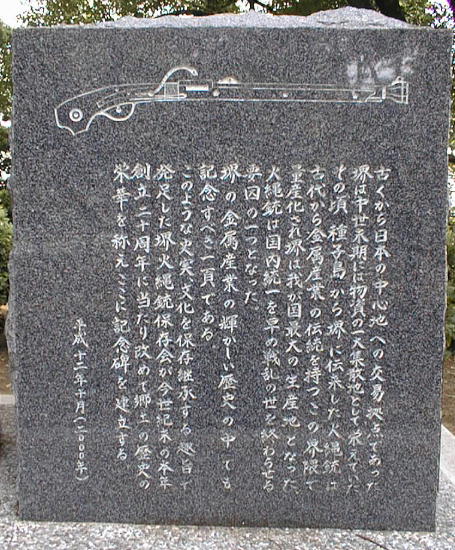 古くから日本の中心地への交易拠点であった
堺は中世末期には物資の一大集散地として栄えていた
その頃 種子島から堺に伝来した火縄銃は
古代から金属産業の伝統を持つこの界隈で
量産化され堺は我が国最大の生産地となった
火縄銃は国内統一を早め戦乱の世を終わらせる
要因の一つとなった
堺の金属産業の輝かしい歴史の中でも
記念すべき一頁である
このような史実文化を保存継承する趣旨で
発足した堺火縄銃保存会が今世紀末の本年
創立二十周年に当たり改めて郷土の歴史の
栄華を称えここに記念碑を建立する
平成十二年十月(二〇〇〇年)